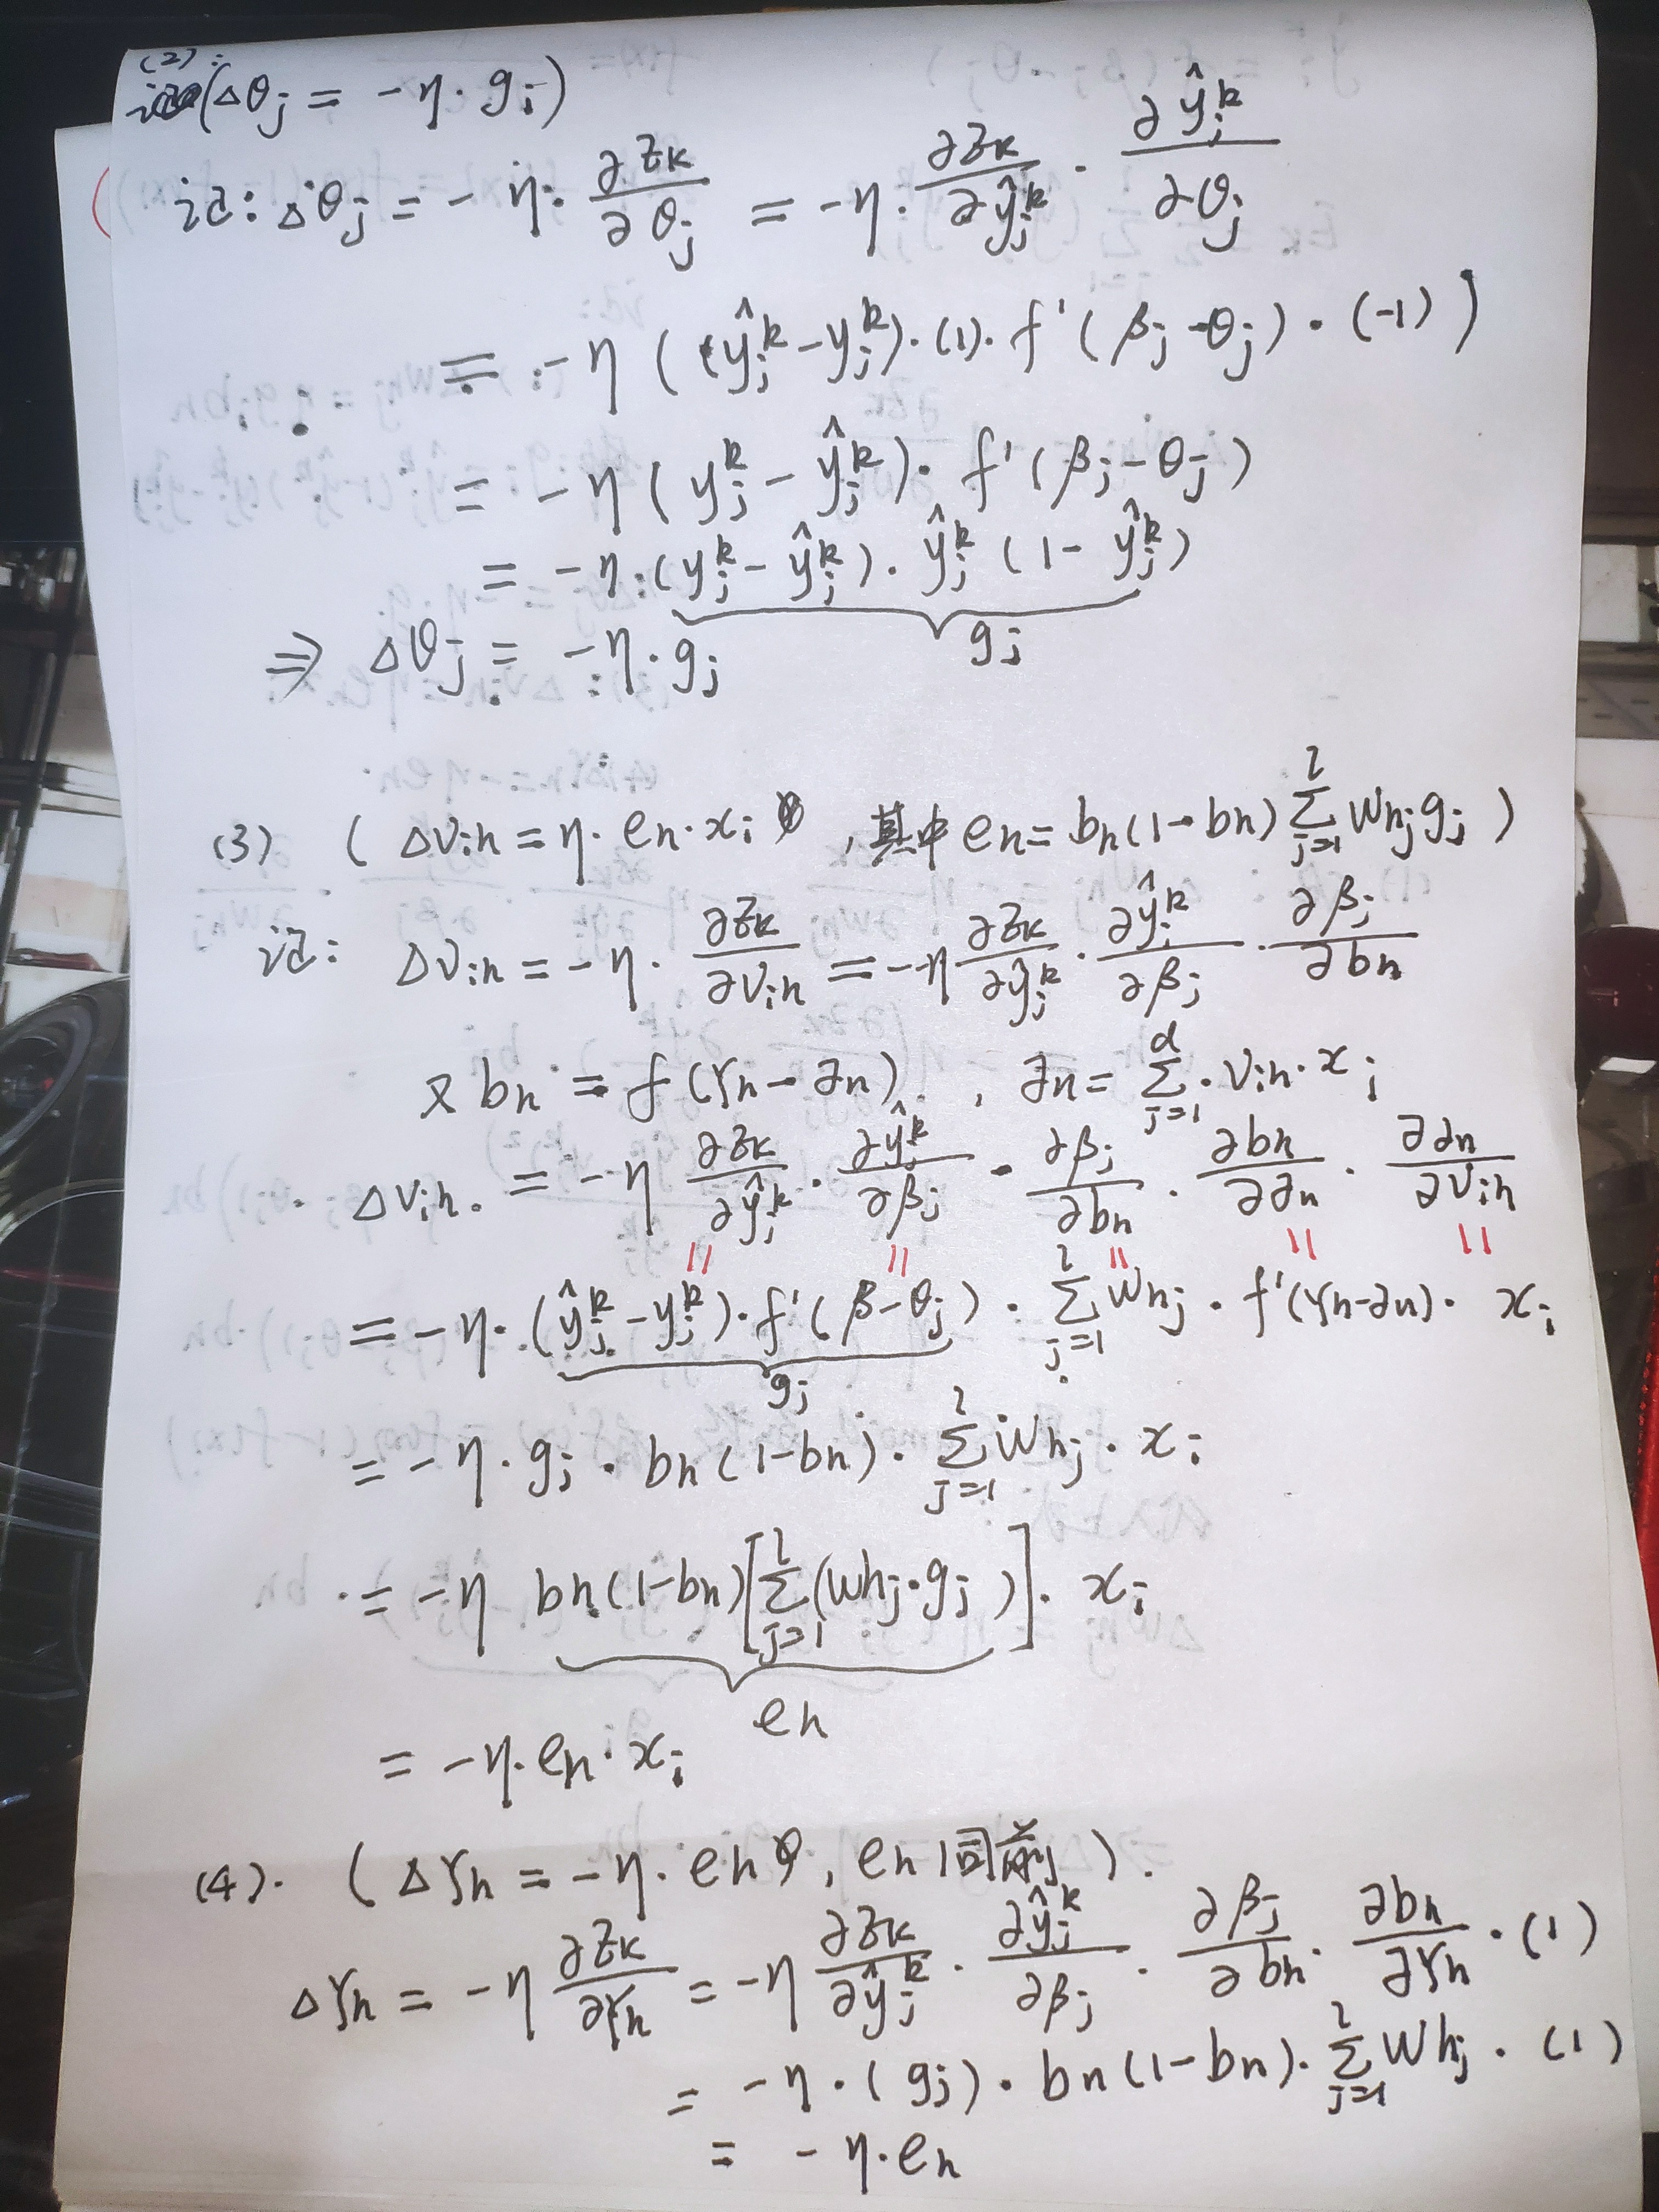 (2):
(Δθj = -η·gj)
记: Δθj = -η·∂Ek/∂θj = -η·∂Ek/∂ŷjᵏ · ∂ŷjᵏ/∂θj
= -η((ŷjᵏ-yjᵏ)·(1)·f'(βj-θj)·(-1))
= -η(yjᵏ-ŷjᵏ)·f'(βj-θj)
= -η·(yjᵏ-ŷjᵏ)·ŷjᵏ(1-ŷjᵏ)
gj
⇒ Δθj = -η·gj
(3) (Δvih = η·eh·xi, 其中eh=bh(1-bh)∑_{j=1}^{l} whj gj)
记: Δvih = -η·∂Ek/∂vih = -η ∂Ek/∂ŷjᵏ · ∂ŷjᵏ/∂βj · ∂βj/∂bh
又 bh = f(γh-∂h), ∂h = ∑_{j=1}^{d}·vih·xi
Δvih = -η ∂Ek/∂ŷjᵏ · ∂ŷjᵏ/∂βj · ∂βj/∂bh · ∂bh/∂∂h · ∂∂h/∂vih
= -η·(ŷjᵏ-yjᵏ)·f'(β-θj)·∑_{j=1}^{l} whj·f'(γh-∂h)·xi
gj
= -η·gj·bh(1-bh)·∑_{j=1}^{l} whj·xi
= -η bh(1-bh)[∑_{j=1}^{l}(whj·gj)]·xi
eh
= -η·eh·xi
(4). (Δγh = -η·eh, eh同前).
Δγh = -η ∂Ek/∂γh = -η ∂Ek/∂ŷjᵏ · ∂ŷjᵏ/∂βj · ∂βj/∂bh · ∂bh/∂γh · (1)
= -η·(gj)·bh(1-bh)·∑_{j=1}^{l} whj·(1)
= -η·eh